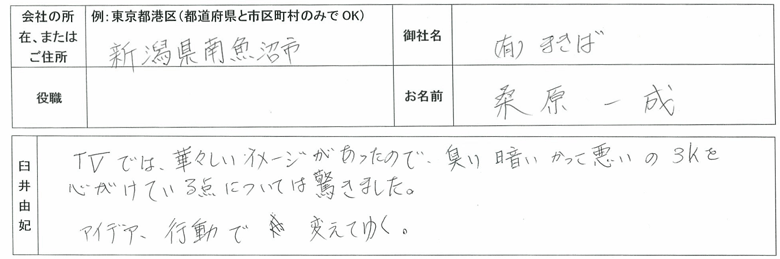 会社の所在、またはご住所
例：東京都港区（都道府県と市区町村のみでOK）
新潟県南魚沼市
御社名
(有) まきば
役職
お名前
桑原 一成
臼井由妃
TVでは、華々しいイメージがあったので、臭い 暗い かって悪いの 3Kを
心がけている点については驚きました。
アイデア、行動で 変えてゆく。